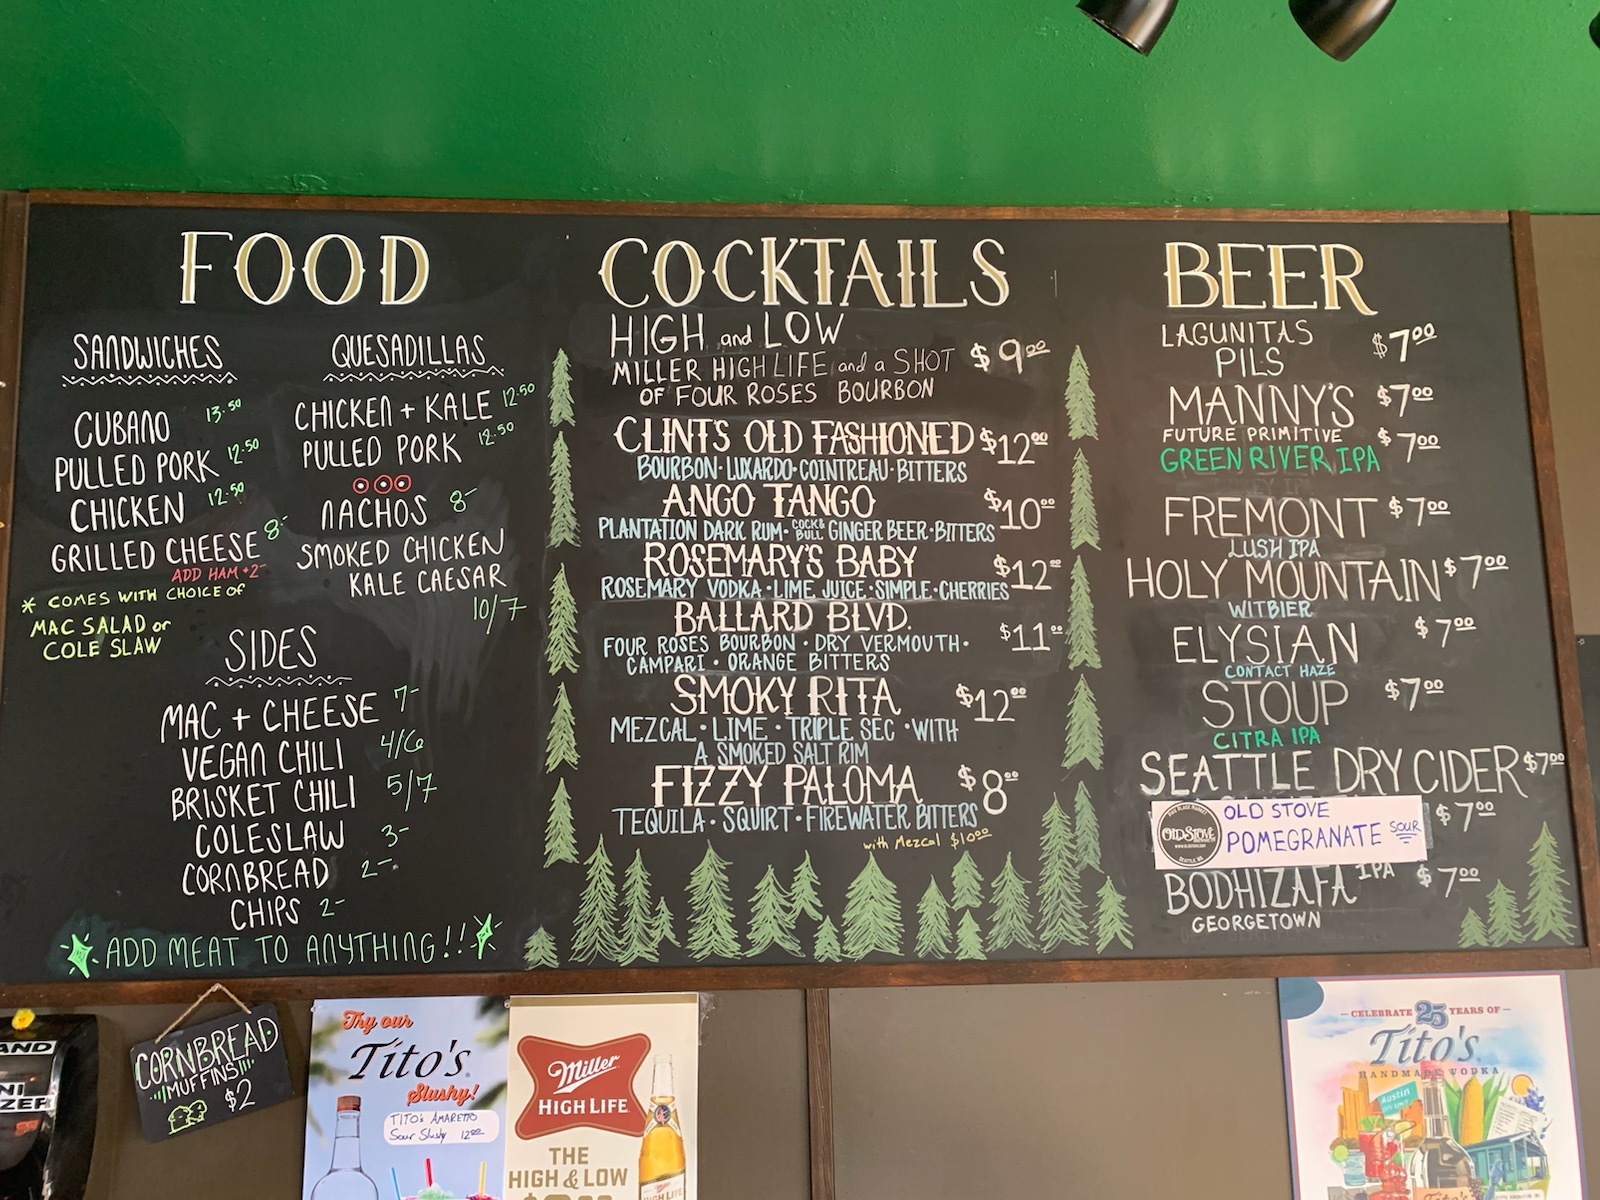 FOOD
SANDWICHES
CUBANO 13.50
PULLED PORK 12.50
CHICKEN 12.50
GRILLED CHEESE 8-
ADD HAM +2-
* COMES WITH CHOICE OF
MAC SALAD or
COLE SLAW
QUESADILLAS
CHICKEN + KALE 12.50
PULLED PORK 12.50
NACHOS 8-
SMOKED CHICKEN
KALE CAESAR
10/7
SIDES
MAC + CHEESE 7-
VEGAN CHILI 4/6
BRISKET CHILI 5/7
COLESLAW 3-
CORNBREAD 2-
CHIPS 2-
ADD MEAT TO ANYTHING!!
COCKTAILS
HIGH and LOW
MILLER HIGH LIFE and a SHOT $9.00
OF FOUR ROSES BOURBON
CLINT'S OLD FASHIONED $12.00
BOURBON · LUXARDO · COINTREAU · BITTERS
ANGO TANGO $10.00
PLANTATION DARK RUM · COCK & BULL GINGER BEER · BITTERS
ROSEMARY'S BABY $12.00
ROSEMARY VODKA · LIME JUICE · SIMPLE · CHERRIES
BALLARD BLVD. $11.00
FOUR ROSES BOURBON · DRY VERMOUTH ·
CAMPARI · ORANGE BITTERS
SMOKY RITA $12.00
MEZCAL · LIME · TRIPLE SEC · WITH
A SMOKED SALT RIM
FIZZY PALOMA $8.00
TEQUILA · SQUIRT · FIREWATER BITTERS
with Mezcal $10.00
BEER
LAGUNITAS $7.00
PILS
MANNY'S $7.00
FUTURE PRIMITIVE $7.00
GREEN RIVER IPA
FREMONT $7.00
LUSH IPA
HOLY MOUNTAIN $7.00
WITBIER
ELYSIAN $7.00
CONTACT HAZE
STOUP $7.00
CITRA IPA
SEATTLE DRY CIDER $7.00
OLD STOVE
OLD STOVE
POMEGRANATE SOUR $7.00
BODHIZAFA IPA $7.00
GEORGETOWN
CORNBREAD
MUFFINS
$2
Try our
Tito's
Slushy!
TITO's AMARETTO
Sour Slushy 12.00
Miller
HIGH LIFE
THE
HIGH & LOW
CELEBRATE 25 YEARS OF
Tito's
HANDMADE VODKA
Austin
Tito's